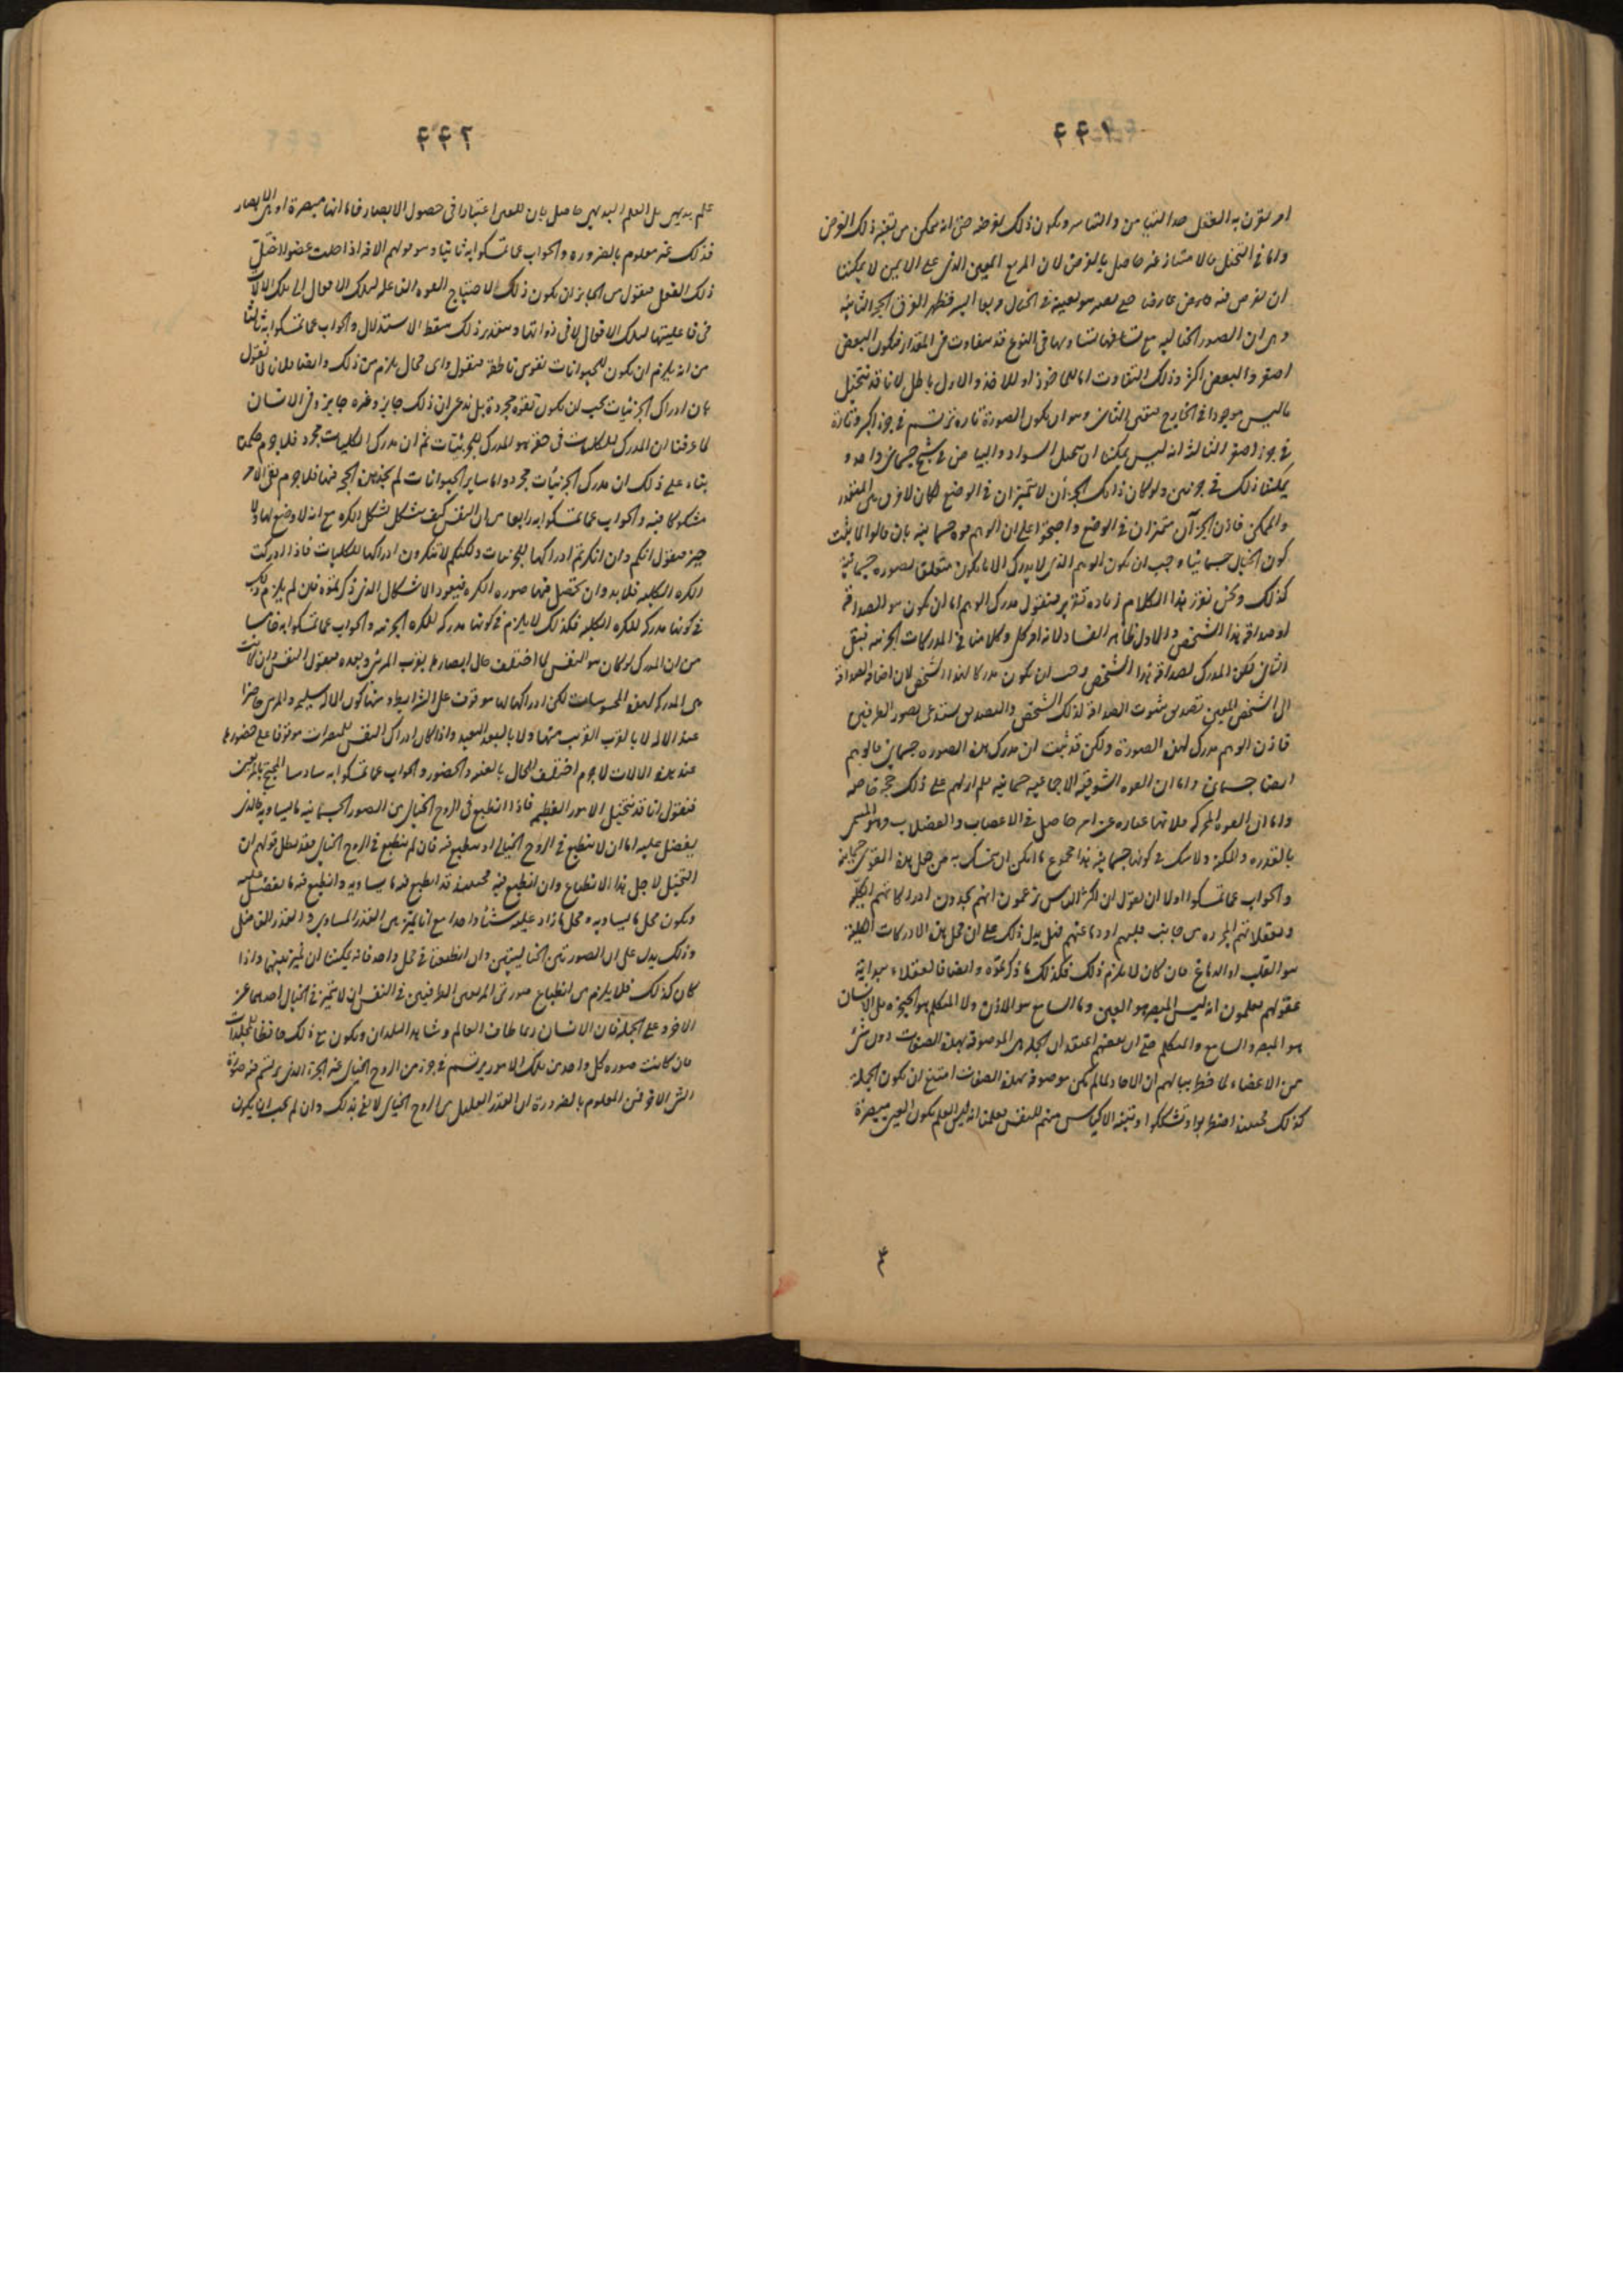 ٤٤١
امر يقرن به العقل حد التيامن والتياسر ويكون ذلك لفرضه حتى انه يمكن من تغير ذلك الفرض
واما في التخيل فالامتياز غير حاصل بالفرض لان المربع المعين الذي على الايمن لا يمكننا
ان نفرض فيه عارض حتى يصير هو بعينه في الخيال مربعا ايسر فظهر الفرق الحجة الثانية
وهي ان الصور الخيالية مع تساويها في النوع قد يتفاوت في المقدار فيكون البعض
اصغر والبعض اكثر وذلك التفاوت اما للماخوذ او للاخذ والاول باطل لانا قد نتخيل
ما ليس موجودا في الخارج فتعين الثاني وهو ان يكون الصورة تارة ترتسم في جزء اكبر وتارة
في جزء اصغر الثالثة انه ليس يمكننا ان نتخيل السواد والبياض في شبح خيالي واحد و
يمكننا ذلك في جزئين ولو كان ذانك الجزءان لا يتميزان في الوضع لكان لا فرق بين المتعذر
والممكن فاذن الجزءان متميزان في الوضع واحتجوا على ان الوهم قوة جسمانية بان قالوا لما ثبت
كون الخيال جسمانيا وجب ان يكون الوهم الذي لا يدرك الا ما يكون متعلقا بصورة جسمانية
كذلك ونحن نقرر هذا الكلام زيادة تقرير فنقول مدرك الوهم اما ان يكون هو الصداقة
او صداقة هذا الشخص والاول ظاهر الفساد لانه امر كلي وكلامنا في المدركات الجزئية فبقى
الثاني لكن المدرك لصداقة هذا الشخص وجب ان يكون مدركا لهذا الشخص لان اضافة الصداقة
الى الشخص المعين تصديق بثبوت الصداقة لذلك الشخص والتصديق يستدعى تصور الطرفين
فاذن الوهم مدرك لهذه الصورة ولكن قد ثبت ان مدرك هذه الصورة جسماني فالوهم
ايضا جسماني واما ان القوة الشوقية الاجماعية جسمانية فلم ار لهم على ذلك حجة خاصة
واما ان القوة المحركة فلانها عبارة عن امر حاصل في الاعصاب والعضلات وهو المسمى
بالقدرة والمكنة ولا شك في كونها جسمانية هذا مجموع ما امكن ان يتمسك به من جعل هذه القوى جسمانية
والجواب عما تمسكوا اولا ان نقول ان اكثر الناس يزعمون انهم يجدون ادراكاتهم الكلية
وتعقلاتهم المجردة من جانب قلبهم او دماغهم فهل يدل ذلك على ان محل هذه الادراكات الكلية
هو القلب او الدماغ فان كان لا يلزم ذلك فكذلك ما ذكرتموه وايضا فالعقلاء ببداية
عقولهم يعلمون انه ليس المبصر هو العين وما السامع هو الاذن ولا المتكلم هو الحنجرة بل الانسان
هو المبصر والسامع والمتكلم حتى ان بعضهم اعتقد ان الجملة هي الموصوفة بهذه الصفات دون شيء
من الاعضاء لما خطر ببالهم ان الاحاد لما لم يكن موصوفة بهذه الصفات امتنع ان يكون الجملة
كذلك فحينئذ اضطربوا وتشككوا وتنبه الاكياس منهم للنفس فعلمنا انه ليس العلم بكون العين مبصرة
٣
٤٤٢
علم بديهي بل العلم البديهي حاصل بان للعين اعتبارا في حصول الابصار فاما انها مبصرة او هي آلة الابصار
فذلك غير معلوم بالضرورة والجواب عما تمسكوا به ثانيا وهو قولهم الافة اذا حلت عضوا اختل
ذلك الفعل فنقول من الجائز ان يكون ذلك لاحتياج القوة الفاعلة لتلك الافعال الى تلك الالات
في فاعليتها لتلك الافعال لا في ذواتها وبتقدير ذلك سقط الاستدلال والجواب عما تمسكوا به ثالثا
من انه يلزم ان يكون للحيوانات نفوس ناطقة فنقول واى محال يلزم من ذلك وايضا فلانا لا نقول
بان ادراك الجزئيات يجب ان يكون لقوة مجردة بل ندعي ان ذلك جايز وغيره جايز وفي الانسان
لما عرفنا ان المدرك للكليات في حقه هو المدرك للجزئيات ثم ان مدرك الكليات مجرد فلا جرم حكمنا
بناء على ذلك ان مدرك الجزئيات مجرد واما ساير الحيوانات لم نجد هذه الحجة فيها فلا جرم بقى الامر
مشكوكا فيه والجواب عما تمسكوا به رابعا من ان النفس كيف تتشكل بشكل الكرة مع انه لا وضع لها ولا
حيز فنقول انكم وان انكرتم ادراكها للجزئيات ولكنكم لا تنكرون ادراكها للكليات فاذا ادركت
الكرة الكلية فلا بد وان تحصل فيها صورة الكرة فيعود الاشكال الذي ذكرتموه فلئن لم يلزم ذلك
في كونها مدركة للكرة الكلية فكذلك لا يلزم في كونها مدركة للكرة الجزئية والجواب عما تمسكوا به خامسا
من ان المدرك لو كان هو النفس لما اختلف حال ابصارها بقرب المرئي وبعده فنقول النفس وان كانت
هي المدركة لهذه المحسوسات لكن ادراكها لها موقوف على شرايط منها كون الآلة سليمة والمرئي حاضرا
عند الآلة لا بالقرب القريب منها ولا بالبعد البعيد واذا كان ادراك النفس للمبصرات موقوفا على حضورها
عند هذه الالات لا جرم اختلف الحال بالغيبة والحضور والجواب عما تمسكوا به سادسا المحتج بالمربعين
فنقول انا قد نتخيل الامور العظيمة فاذا انطبع في الروح الخيالي من الصور الجسمانية ما يساويه فالذي
يفضل عليه اما ان لا ينطبع في الروح الخيالي او ينطبع فيه فان لم ينطبع في الروح الخيالي فقد بطل قولهم ان
التخيل لاجل هذا الانطباع وان انطبع فيه فحينئذ قد انطبع فيه ما يساويه وانطبع فيه ما يفضل عليه
ويكون محل ما يساويه ومحل ما زاد عليه شيئا واحدا مع انا نميز بين القدر المساوي والقدر الفاضل
وذلك يدل على ان الصورتين الخياليتين وان انطبعتا في محل واحد فانه يمكننا ان نميز بينهما واذا
كان كذلك فلا يلزم من انطباع صورتي المربعين الطرفيين في النفس ان لا يتميز في الخيال احدهما عن
الاخر وعلى الجملة فان الانسان ربما طاف العالم وشاهد البلدان ويكون مع ذلك حافظا للمجلدات
فان كانت صورة كل واحد من تلك الامور يرتسم في جزء من الروح الخيالي غير الجزء الذي يرتسم فيه صورة
الشيء الاخر فمن المعلوم بالضرورة ان القدر القليل من الروح الخيالي لا يفي بذلك وان لم يجب ان يكون